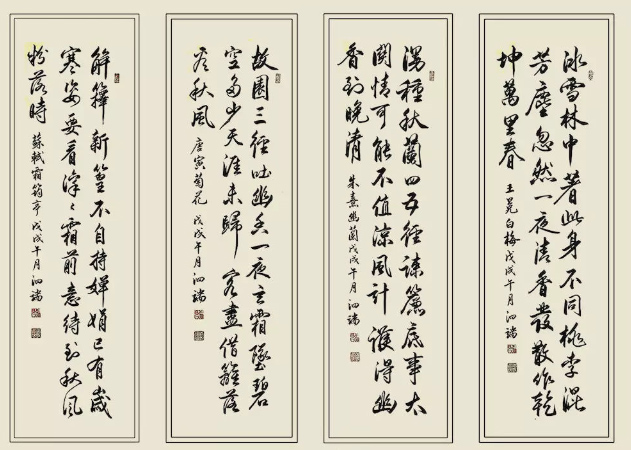 冰雪林中著此身不同桃李混
芳塵忽然一夜清香發散作乾
坤萬里春
王冕白梅戊戌午月泗端
漫種秋蘭四五莖疎簾底事太
關情可能不值涼風計護得幽
香到晚清
朱熹幽蘭戊戌午月泗端
故園三徑吐幽叢一夜玄霜墜碧
空多少天涯未歸客盡借籬落
看秋風
唐寅菊花戊戌午月泗端
解籜新篁不自持嬋娟已有歲
寒姿要看凜凜霜前意待到秋風
粉落時
蘇軾霜筠亭戊戌午月泗端